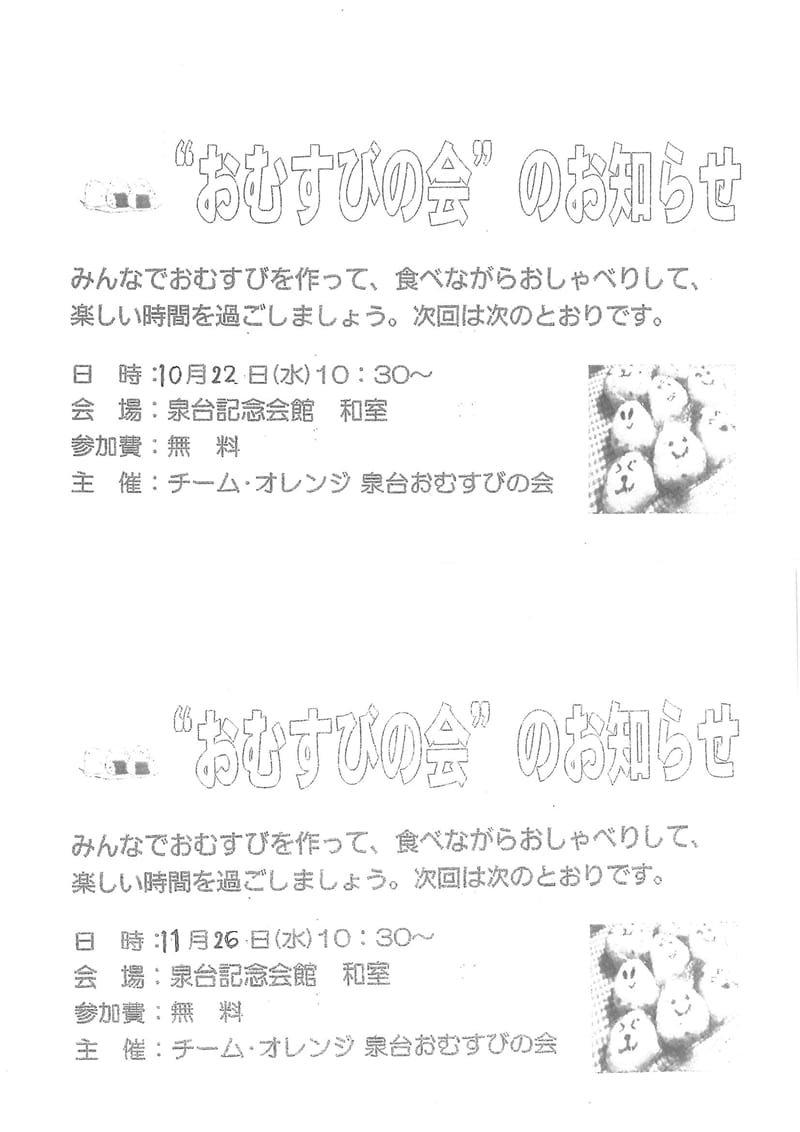 “おむすびの会”のお知らせ
みんなでおむすびを作って、食べながらおしゃべりして、
楽しい時間を過ごしましょう。次回は次のとおりです。
日　時：10月22日(水)10：30～
会　場：泉台記念会館　和室
参加費：無　料
主　催：チーム・オレンジ 泉台おむすびの会
“おむすびの会”のお知らせ
みんなでおむすびを作って、食べながらおしゃべりして、
楽しい時間を過ごしましょう。次回は次のとおりです。
日　時：11月26日(水)10：30～
会　場：泉台記念会館　和室
参加費：無　料
主　催：チーム・オレンジ 泉台おむすびの会